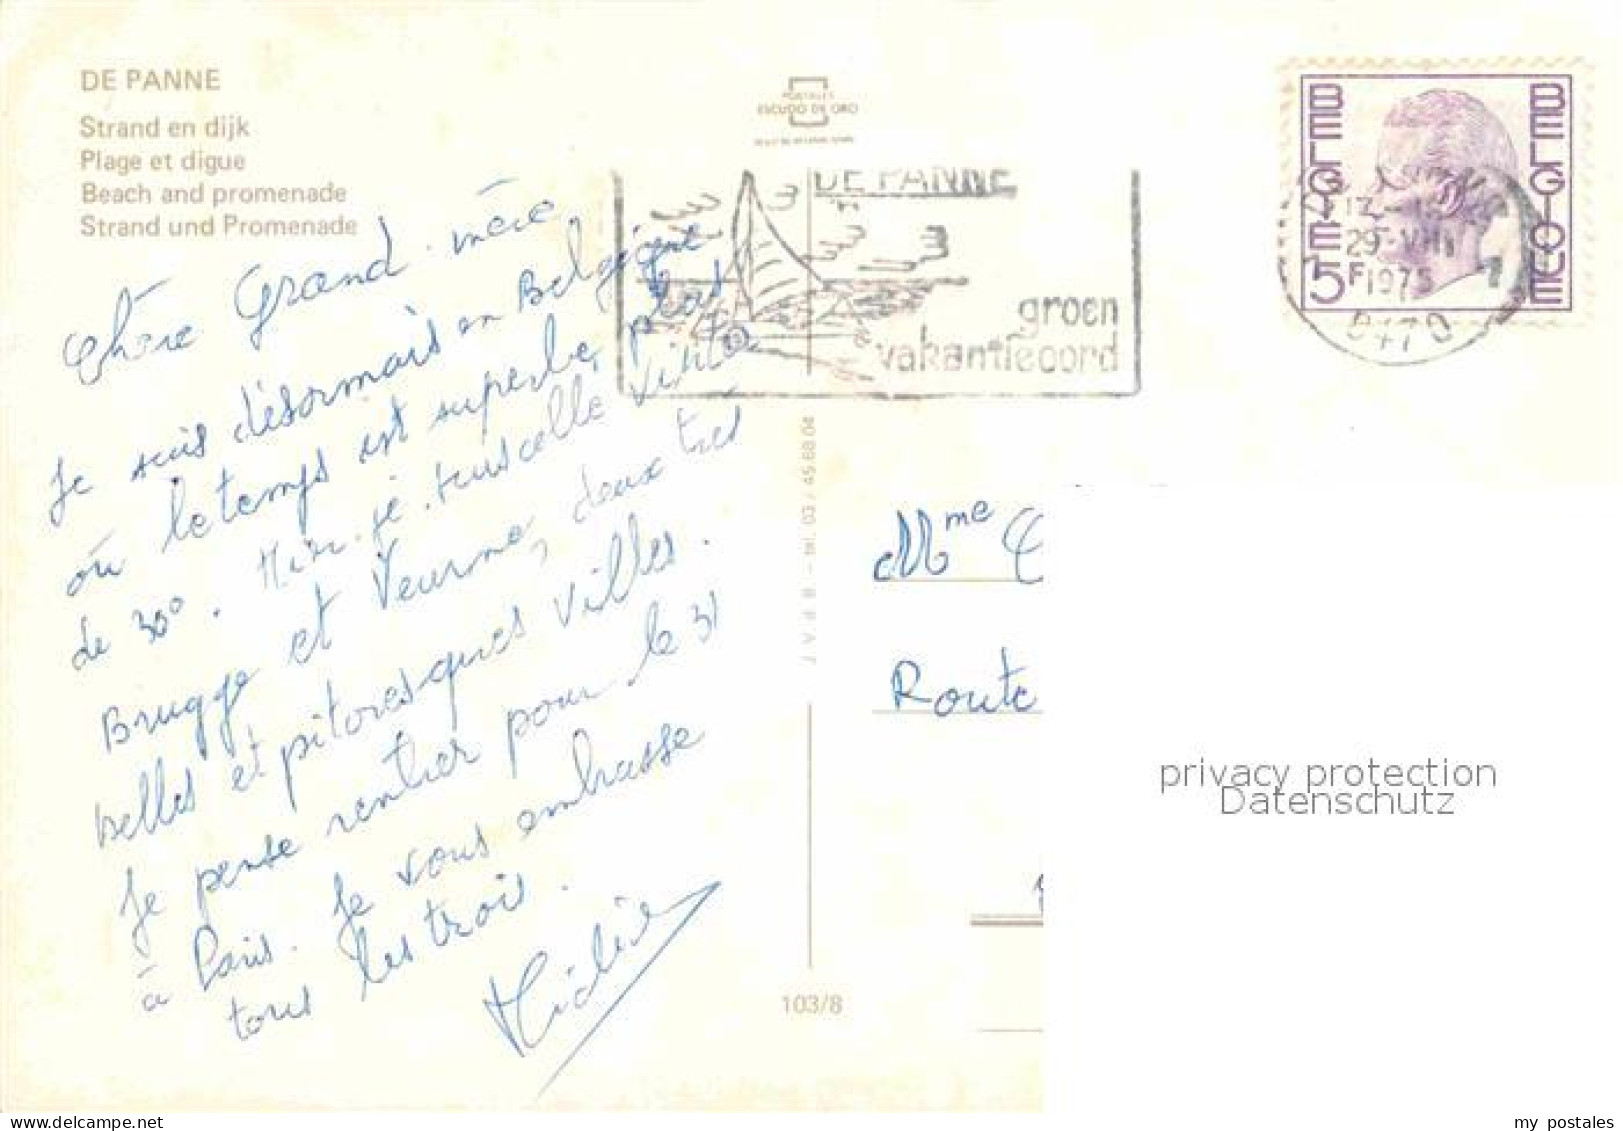 DE PANNE
Strand en dijk
Plage et digue
Beach and promenade
Strand und Promenade
Chère Grand-mère
Je suis désormais en Belgique
où le temps est superbe, plus
de 30°. Hier je suis allé visiter
Brugge et Veurne, deux très
belles et pitoresques villes.
Je pense rentrer pour le 31
à Paris. Je vous embrasse
tous les trois.
POSTALES
ESCUDO DE ORO
DE PANNE
groen
vakantieoord
BELGIË
BELGIQUE
5F
29-VIII
1975
8470
J.V.d.B. - tel. 03 / 45.68.04
103/8
Mme
Route
privacy protection
Datenschutz
my postales